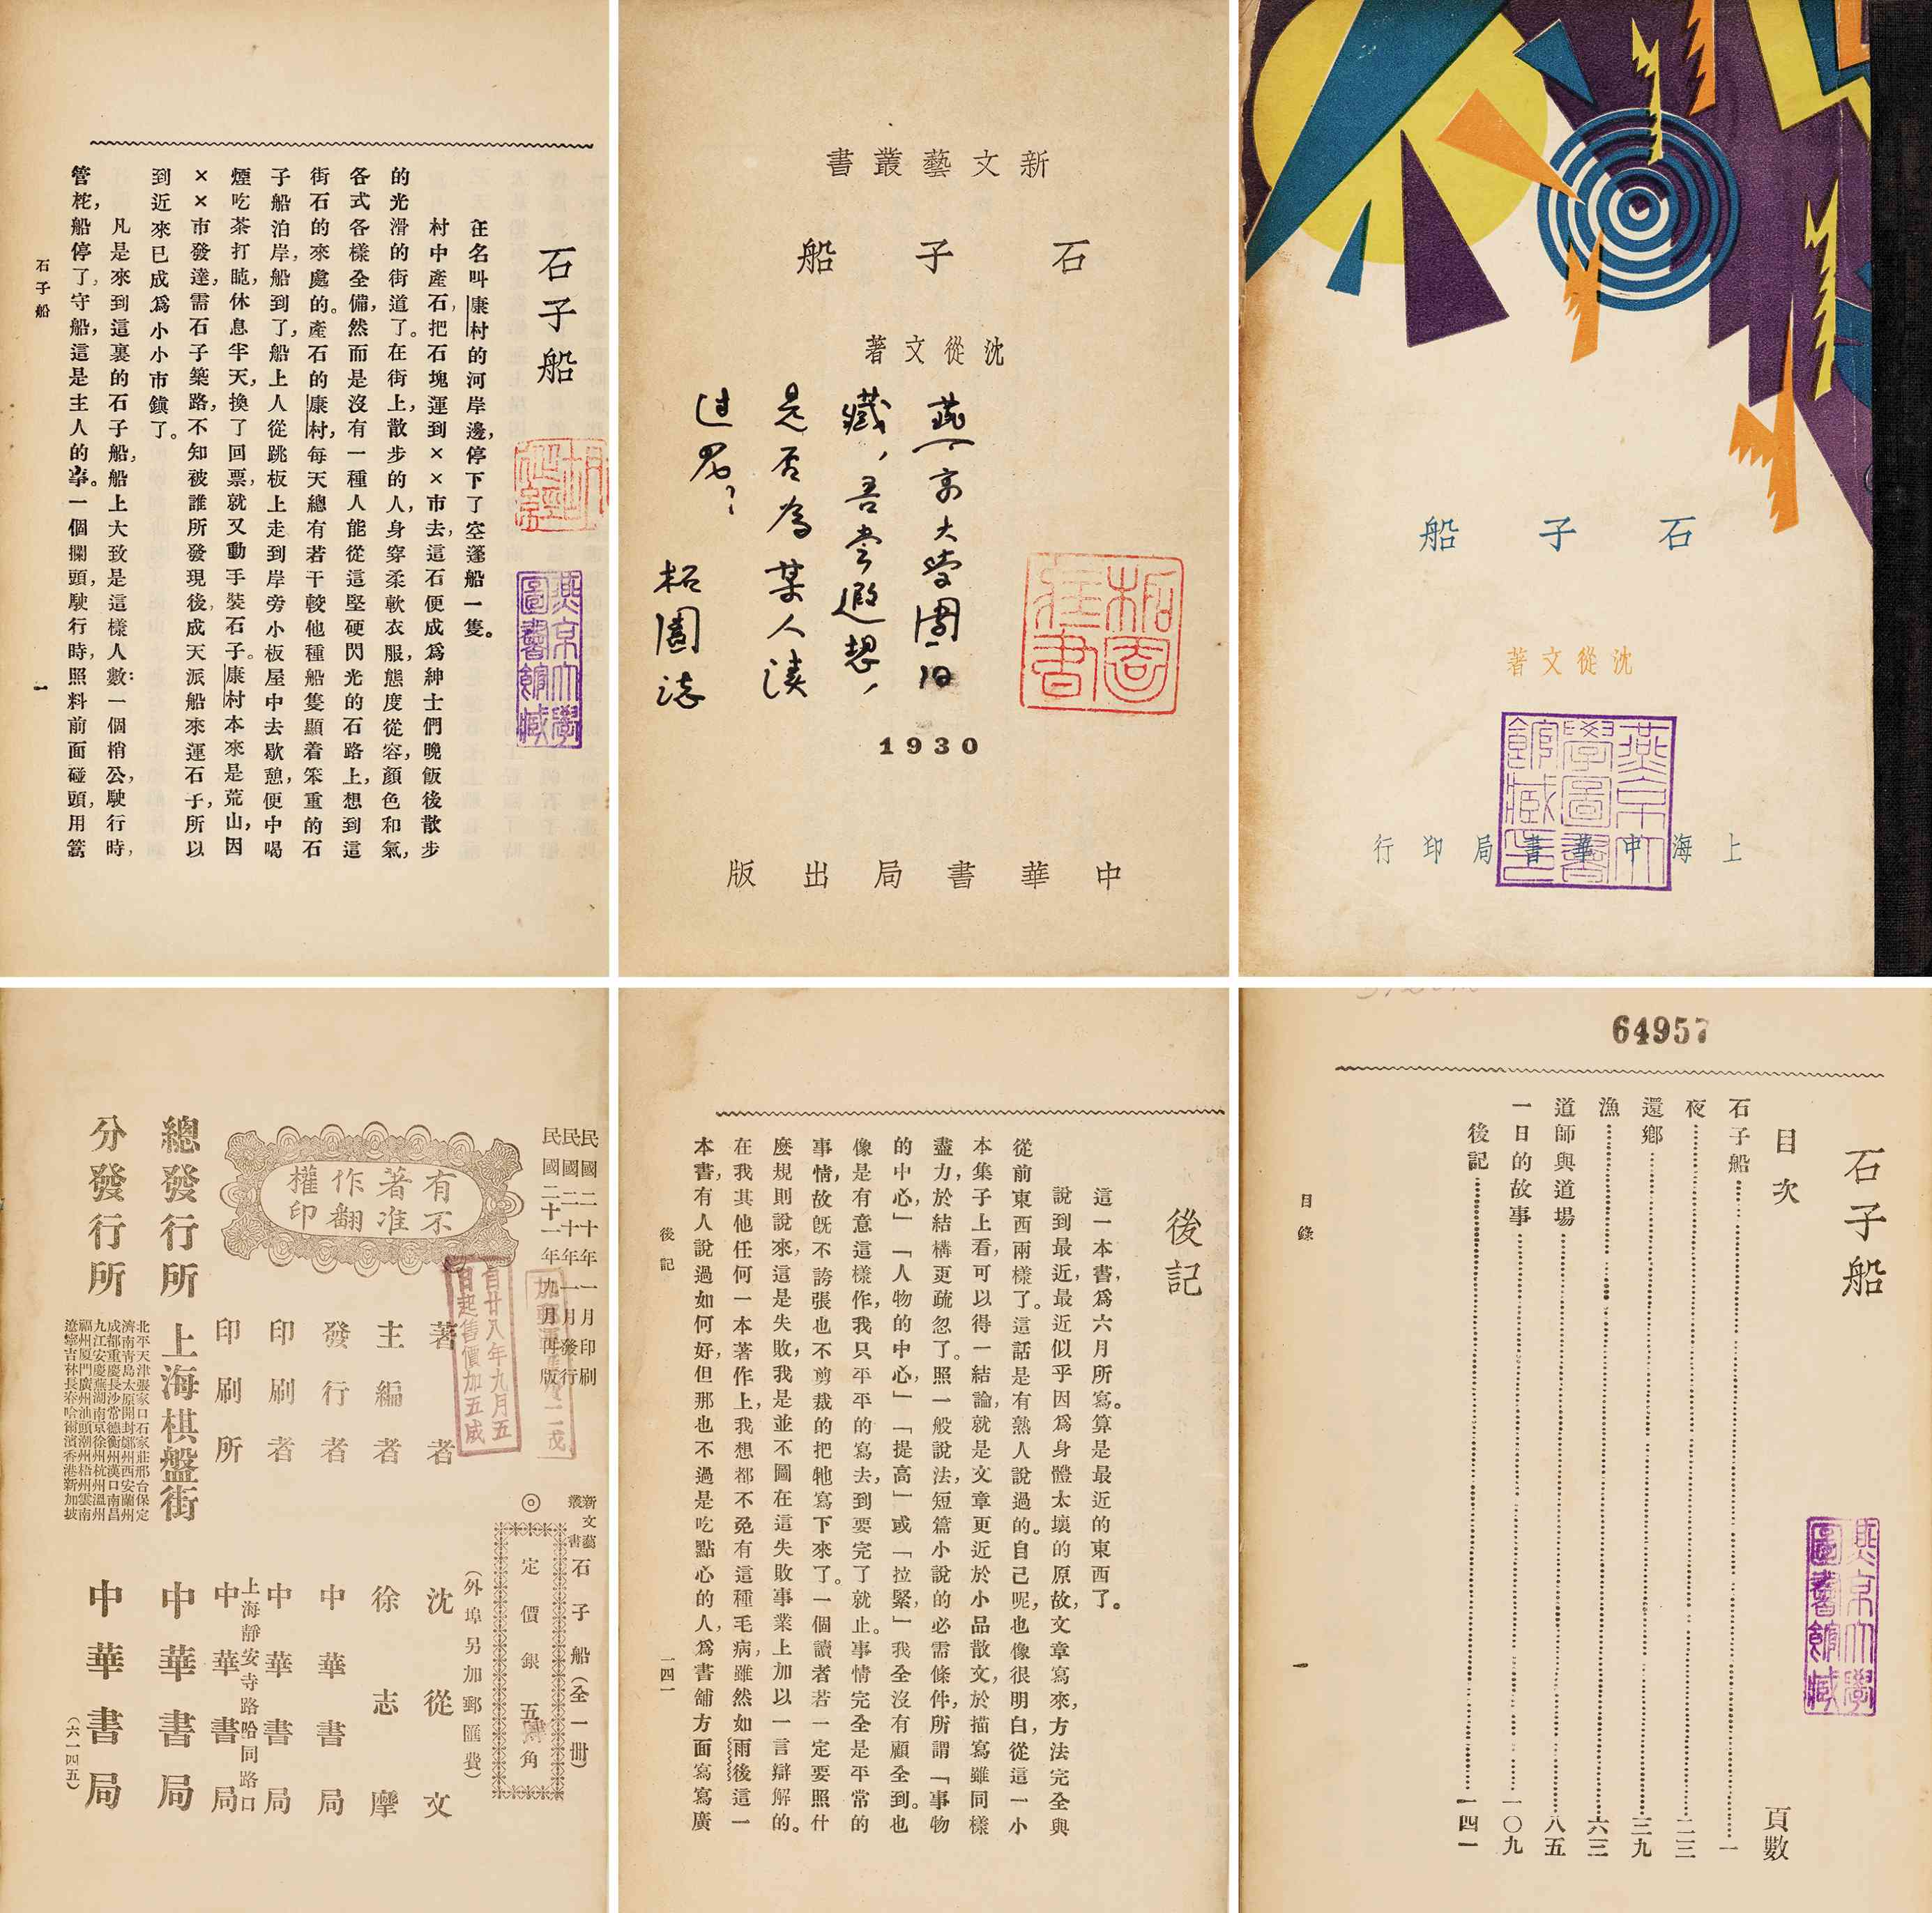 石子船
沈從文著
燕京大學圖書館藏書
上海中華書局印行
新文藝叢書
石子船
沈從文著
燕京大學圖書舊
藏，吾嘗遐想，
是否為某人讀
過呢？
柘園誌
柘園
1930
中華書局出版
石子船
燕京大學
圖書館藏
在名叫康村的河岸邊，停下了空蓬船一隻。
村中產石，把石塊運到××市去，這石便成爲紳士們晚飯後散步
的光滑的街道了。在街上，散步的人，身穿柔軟衣服，態度從容，顏色和氣，
各式各樣全備，然而是沒有一種人能從這堅硬閃光的石路上，想到這
街石的來處的。產石的康村，每天總有若干較他種船隻顯着笨重的石
子船泊岸，船到了，船上人從跳板上走到岸旁小板屋中去歇憩，便中喝
煙吃茶打盹，休息半天，換了回票，就又動手裝石子。康村本來是荒山，因
××市發達，需石子築路，不知被誰所發現後，成天派船來運石子，所以
到近來已成爲小小市鎭了。
凡是來到這裏的石子船，船上大致是這樣人數：一個梢公，駛行時，
管柁，船停了，守船，這是主人的事。一個攔頭，駛行時，照料前面碰頭，用篙
石子船
一
64957
石子船
目次
頁數
石子船……一
夜……二三
還鄉……三九
漁……六三
道師與道場……八五
一日的故事……一〇九
後記……一四一
目錄
一
燕京大學
圖書館藏
後記
這一本書，爲六月所寫。算是最近的東西了。
說到最近，最近似乎因爲身體太壞的原故，文章寫來，方法完全與
從前東西兩樣了。這話是有熟人說過的。自己呢，也像很明白，從這一小
本集子上看，可以得一結論，就是文章更近於小品散文，於描寫雖同樣
盡力，於結構更疏忽了。照一般說法，短篇小說的必需條件，所謂「事物
的中心，」「人物的中心，」「提高」或「拉緊，」我全沒有顧全到。也
像是有意這樣作，我只平平的寫去，到要完了就止。事情完全是平常的
事情，故旣不誇張也不剪裁的把牠寫下來了。一個讀者若一定要照什
麼規則說來，這是失敗，我是並不圖在這失敗事業上加以一言辯解的。
在我其他任何一本著作上，我想都不免有這種毛病，雖然如雨後這一
本書，有人說過如何好，但那也不過是吃點心的人，爲書鋪方面寫寫廣
後記
一四一
民國二十年一月印刷
民國二十年一月發行
民國二十一年九月再版
自廿八年九月五
日起售價加五成
有著作權
不准翻印
新文藝叢書
石子船（全一冊）
◎
定價銀五角
（外埠另加郵匯費）
著者 沈從文
主編者 徐志摩
發行者 中華書局
印刷者 中華書局
印刷所 上海靜安寺路哈同路口 中華書局
總發行所 上海棋盤街 中華書局
分發行所 中華書局
北平天津張家口石家莊邢台保定
濟南靑島太原開封鄭州西安蘭州
成都重慶長沙常德衡州漢口南昌
九江安慶蕪湖南京徐州杭州溫州
福州廈門廣州汕頭潮州梧州雲南
遼寧吉林長春哈爾濱香港新加坡
（六一四五）